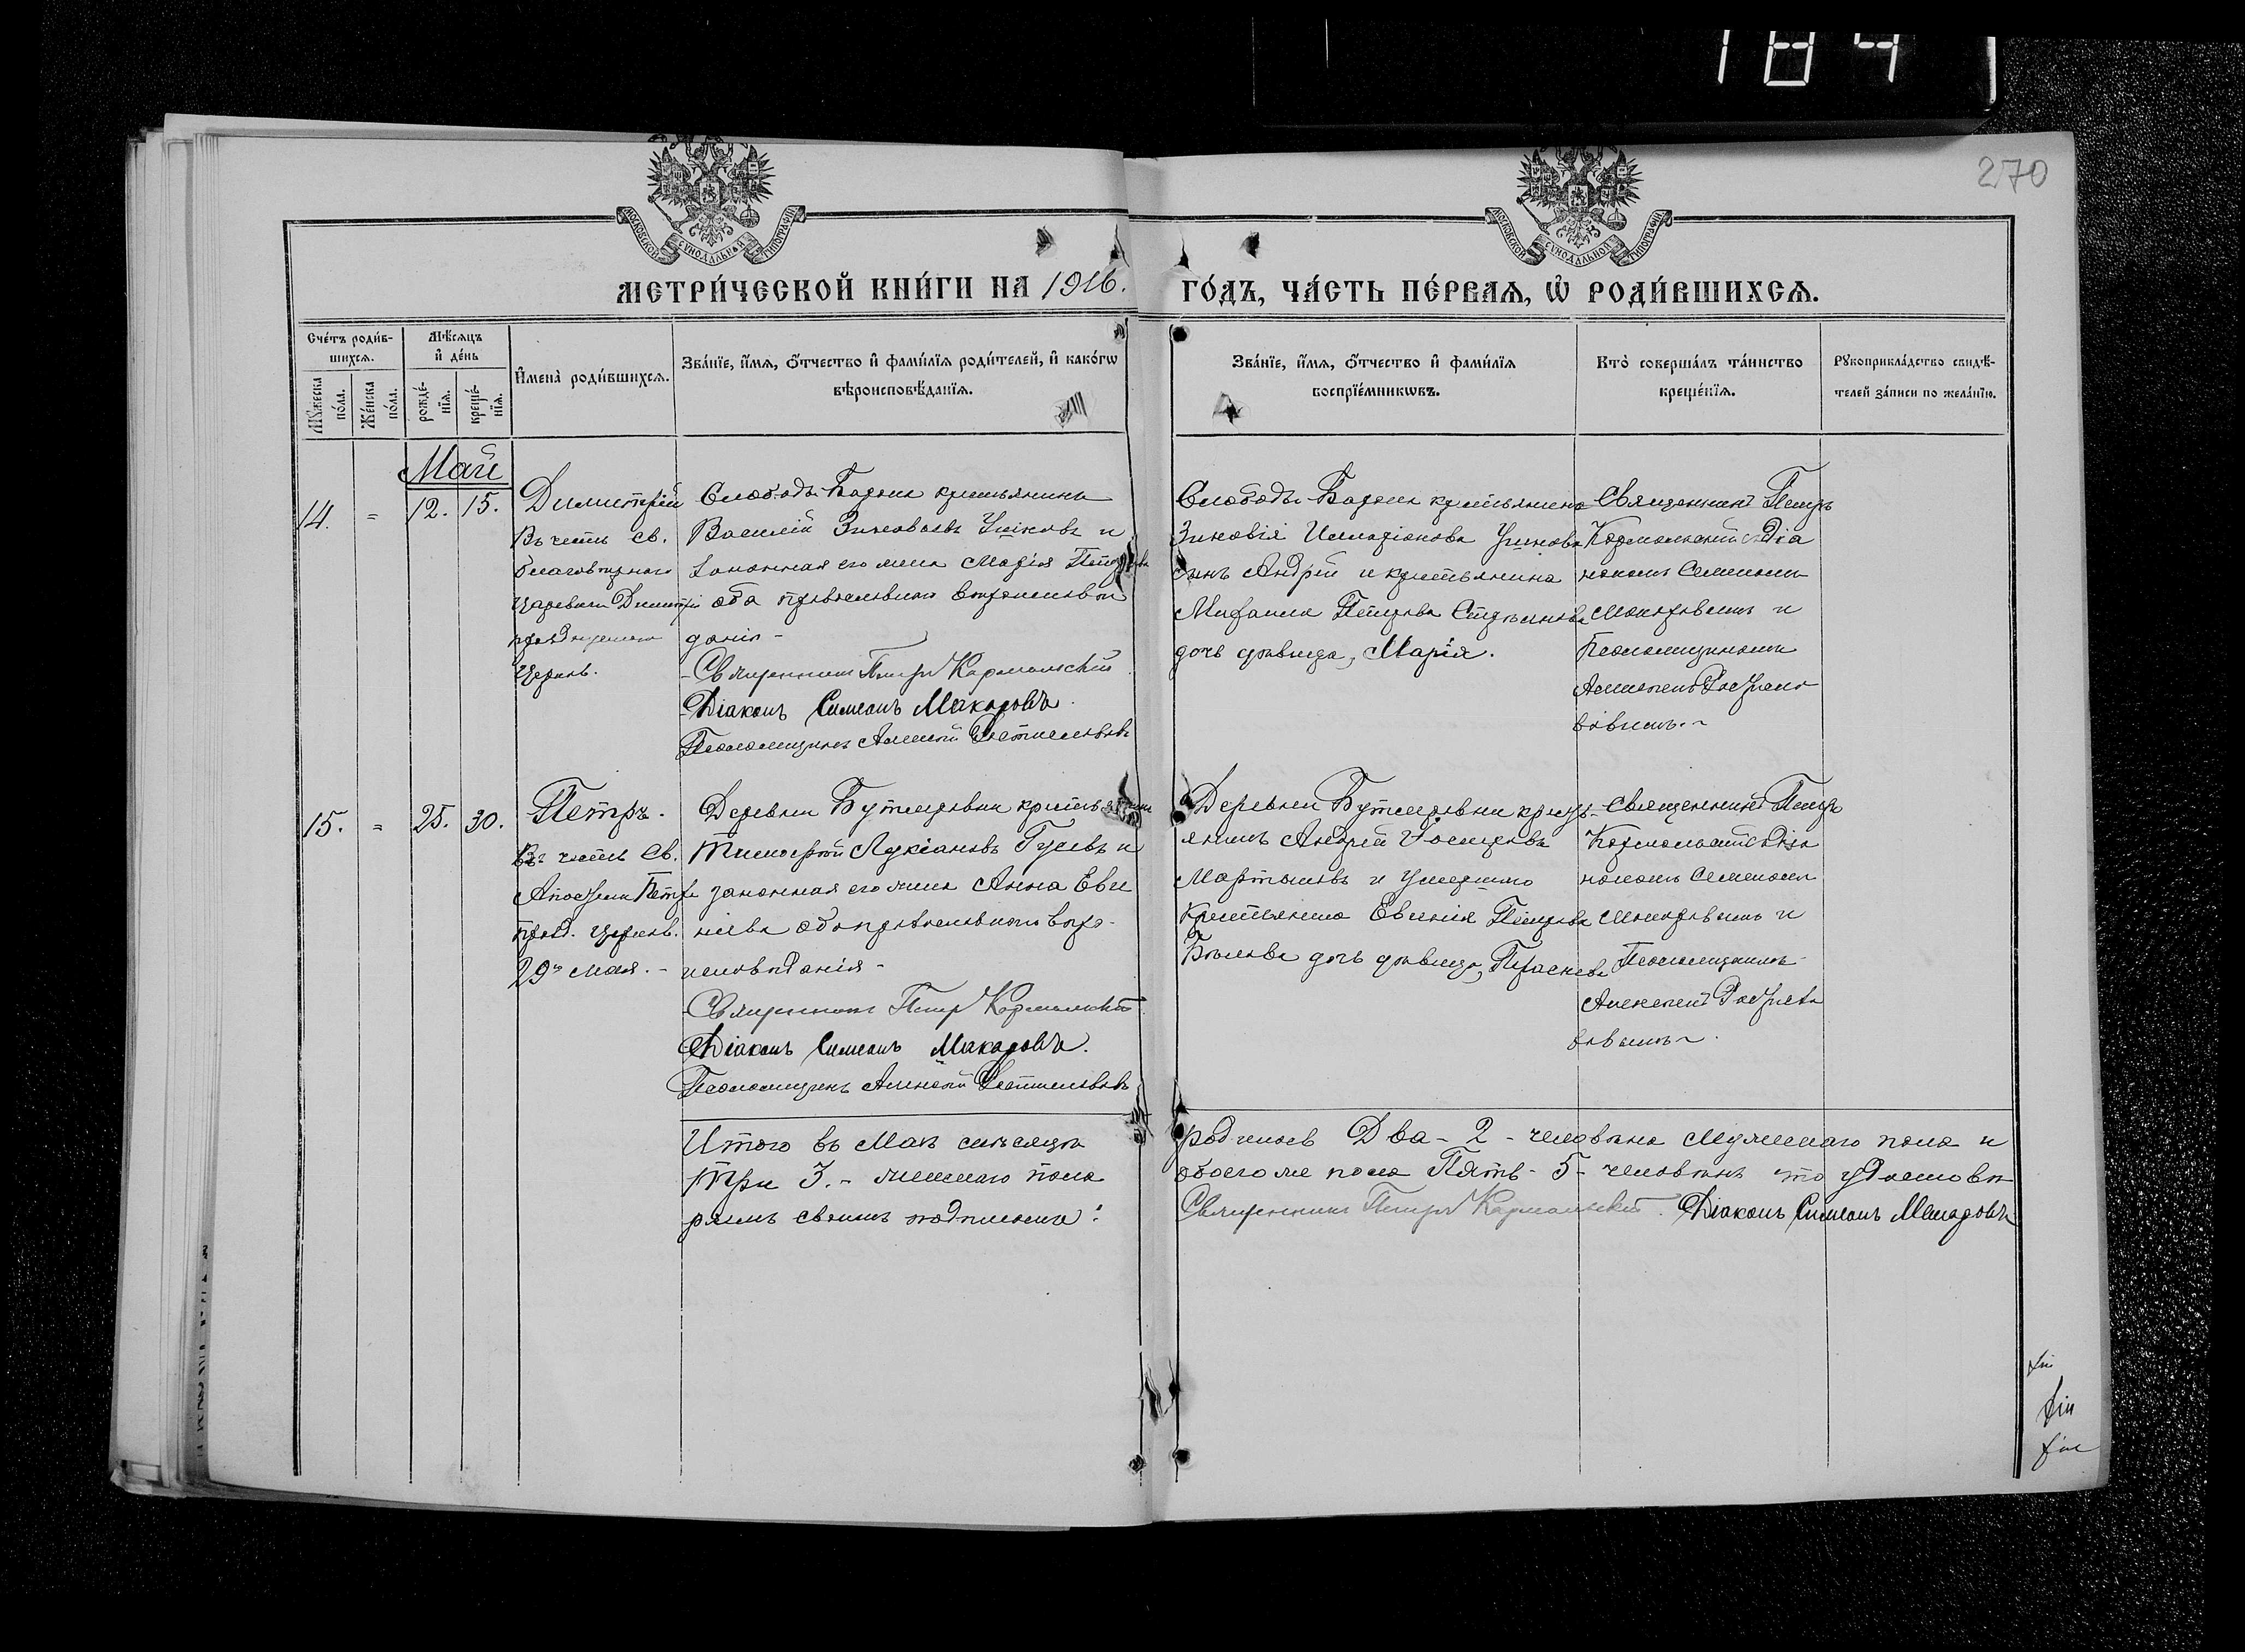 184
270
МОСКОВСКОЙ СУНОДАЛЬНОЙ ТИПОГРАФІИ
МОСКОВСКОЙ СУНОДАЛЬНОЙ ТИПОГРАФІИ
МЕТРИ́ЧЕСКОЙ КНИ́ГИ НА 1916.
ГО́ДЪ, ЧА́СТЬ ПЕ́РВАЯ, Ѡ РОДИ́ВШИХСЯ.
Сче́тъ роди́в-
шихся.
Мѣ́сяцъ
и де́нь
Мꙋ́жеска
по́ла.
Же́нска
по́ла.
рожде́-
нїя.
креще́-
нїя.
Имена̀ роди́вшихся.
Зва́нїе, и́мя, о́тчество и фами́лїя роди́телей, и како́гѡ
вѣроисповѣ́данїя.
Зва́нїе, и́мя, о́тчество и фами́лїя
воспрїе́мникѡвъ.
Кто̀ соверша́лъ та́инство
креще́нїя.
Рꙋкоприкла́дство свидѣ́-
телей за́писи по жела́нїю.
Май
14. = 12. 15.
Димитрій
Въ честь св.
благовѣрнаго
Царевича Димитрія
Церковь.
Слободы крестьянинъ
Василій Зиновьевъ Ушковъ и
законная его жена Марія
оба православнаго вѣроисповѣ
данія -
Священникъ Петръ Кармальскій
Діаконъ Симеонъ Макаровъ.
Псаломщикъ Алексѣй
Слободы крестьянина
Зиновія Ушкова
сынъ Андрей и крестьянина
Михаила Петрова
дочь дѣвица, Марія.
Священникъ Петръ
Кармальскій съ Діа
кономъ Симеономъ
Макаровымъ и
Псаломщикомъ
Алексѣемъ
вымъ. ~
15. = 25. 30.
Петръ.
Въ честь Св.
Апостола Петра
празд. Церков.
29го мая. -
Деревни Бутыровки крестьянинъ
Тимофей Лукіановъ Гусевъ и
законная его жена Анна Евги
ніева оба православнаго вѣро-
исповѣданія -
Священникъ Петръ Кармальскій
Діаконъ Симеонъ Макаровъ.
Псаломщикъ Алексѣй
Деревни Бутыровки кресть-
янинъ Андрей
Мартыновъ и умершаго
Крестьянина Евгенія Петрова
дочь дѣвица, Параскева
Священникъ Петръ
Кармальскій съ Діа
кономъ Симеономъ
Макаровымъ и
Псаломщикомъ
Алексѣемъ
вымъ ~
Итого въ Маѣ мѣсяцѣ
Три 3. - женскаго пола
ряемъ своимъ подписомъ:
родилось Два - 2 - человѣка мужескаго пола и
обоего же пола Пять - 5 - человѣкъ что удостовѣ
Священникъ Петръ Кармальскій. Діаконъ Симеонъ Макаровъ